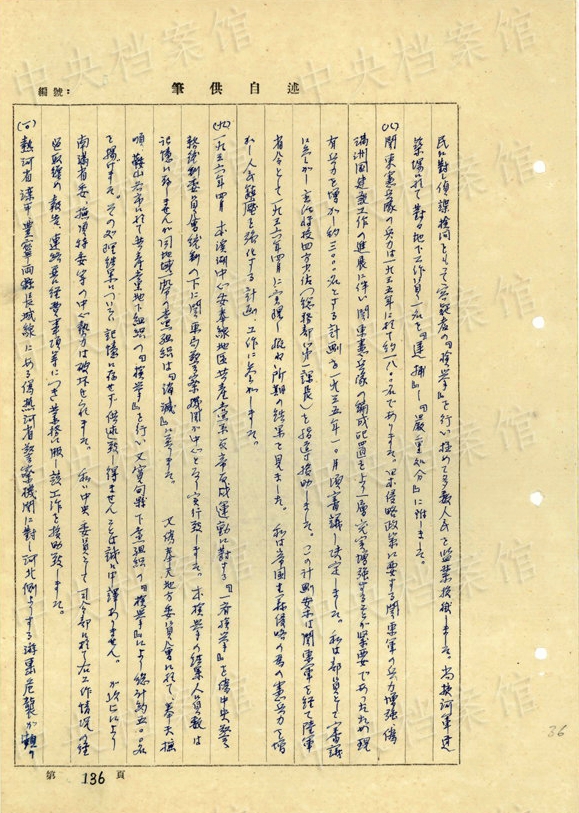 中央档案馆
編號：
筆供自述
民に對し偵諜檢問として容疑者の『検挙』を行い極めて多数人民を監禁投獄しました。尚換河軍建
築場に於て對ソ地下工作員一名を『逮捕』し『嚴重処分』に附しました。
(八)関東憲兵隊の兵力は一九三五年に於て約一八〇〇名でありました。日本侵略政策に要する関東軍の兵力増強偽
満洲国建設工作の進展に伴い関東憲兵隊の編成配置をより一層充実増強することが緊要であったため現
有兵力を増加し約三〇〇〇名とする計画を一九三五年一〇月頃審議し決定しました。私は部員として審議
に参加し主任将校四方少佐（総務部第一課長）を指導援助しました。この計画案は関東軍を経て陸軍
省令として一九三六年四月に実現し概ね所期の結果を見ました。私は帝国主義侵略の為の憲兵力を増
加し人民鎮圧を強化する計画工作に参加しました。
(九)一九三六年四月本溪湖中心安奉線地区共產黨系反帝反戎運動に対する『一斉検挙』を偽中央警
務統制委員會統制の下に関東局警察機関が中心となり実行致しました。本検挙の結果人員数は
記憶にありませんが同地域内の黨組織は『潰滅』に至りました。又偽奉天地方委員會に於て、奉天撫
順鞍山各市に於て共產黨地下組織の『検挙』を行い又賓甸縣下黨組織の『検挙』により総計約五〇〇名
を揚げました。その処理結果については記憶に存せず供述致し得ませんことは誠に申訳ありません。が以上により
南満省委、撫順特委等の中心勢力は破壊せられました。私は中央委員として司令部に於て右工作情況の経
過取纏め報告、連絡並に経費事項等につき業務に服し該工作を援助致しました。
(一〇)熱河省灤平、豊寧両縣長城線にある偽熱河省警察機関に對し河北側よりする游撃危襲が頻々
第136頁
36